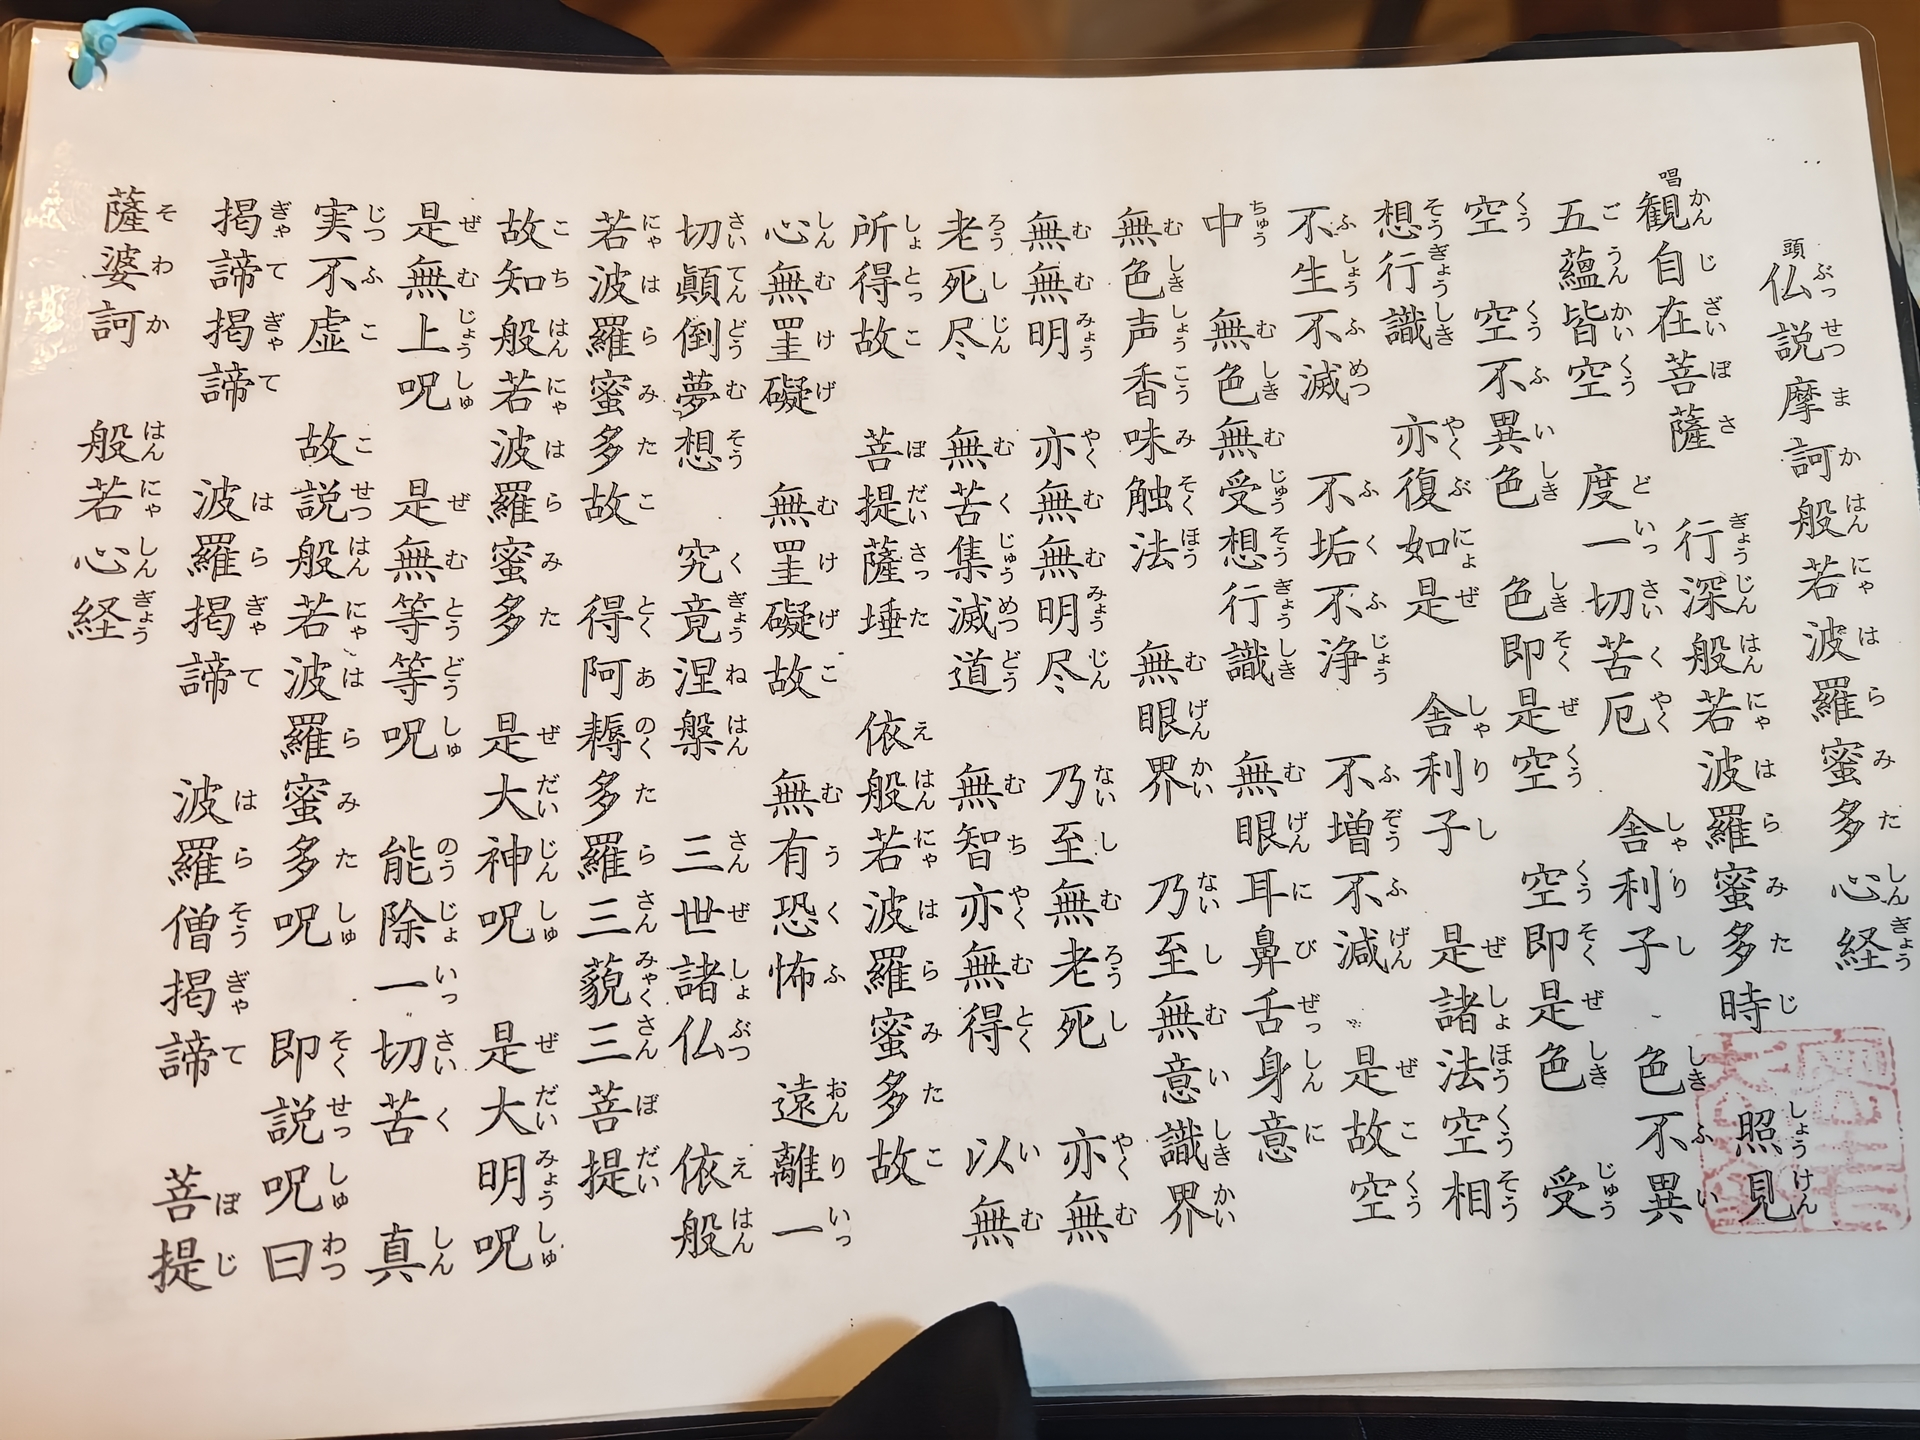 頭 仏説摩訶般若波羅蜜多心経
唱 観自在菩薩 行深般若波羅蜜多時 照見
五蘊皆空 度一切苦厄 舎利子 色不異
空 空不異色 色即是空 空即是色 受
想行識 亦復如是 舎利子 是諸法空相
不生不滅 不垢不浄 不増不減 是故空
中 無色無受想行識 無眼耳鼻舌身意
無色声香味触法 無眼界 乃至無意識界
無無明 亦無無明尽 乃至無老死 亦無
老死尽 無苦集滅道 無智亦無得 以無
所得故 菩提薩埵 依般若波羅蜜多故
心無罣礙 無罣礙故 無有恐怖 遠離一
切顚倒夢想 究竟涅槃 三世諸仏 依般
若波羅蜜多故 得阿耨多羅三藐三菩提
故知般若波羅蜜多 是大神呪 是大明呪
是無上呪 是無等等呪 能除一切苦 真
実不虚 故説般若波羅蜜多呪 即説呪曰
掲諦掲諦 波羅掲諦 波羅僧掲諦 菩提
薩婆訶 般若心経